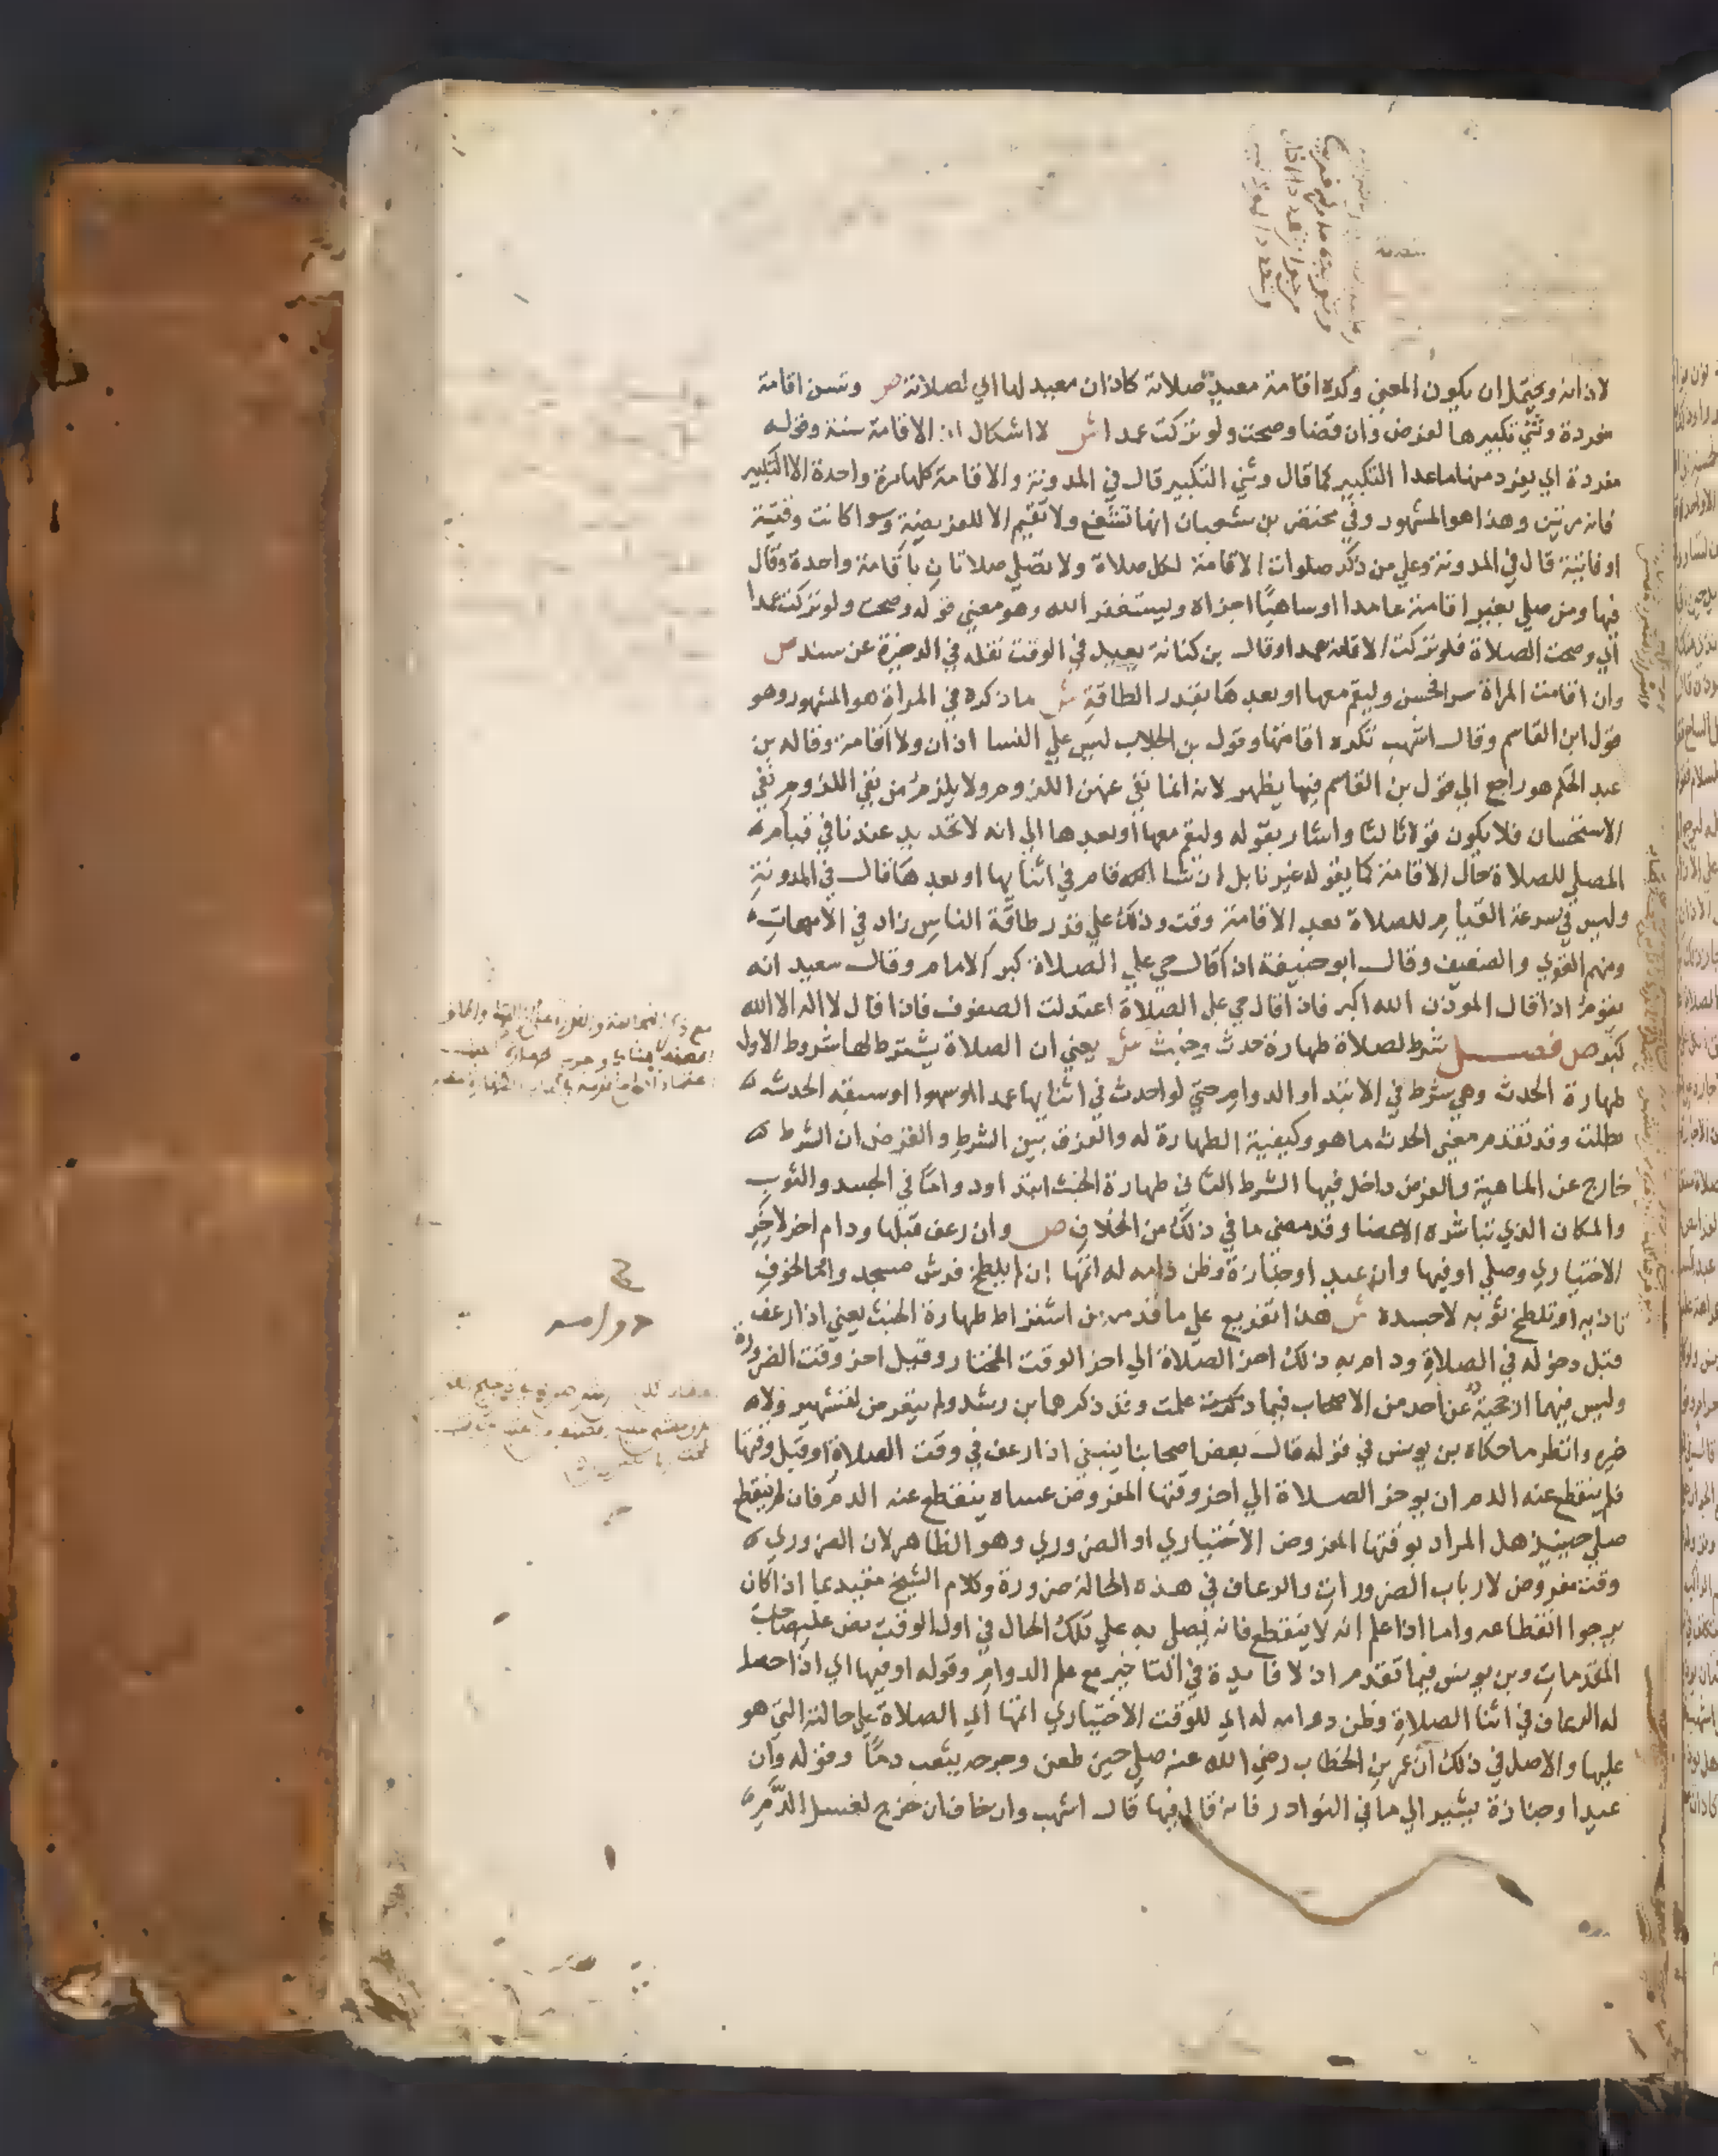 لاذانه ويحتمل ان يكون المعني وكره اقامة معيد صلاته كاذان معيد لها اي لصلاته ص وتسن اقامة
مفردة وثني تكبيرها لفرض وان قضا وصحت ولو تركت عمدا ش لا اشكال ان الاقامة سنة وقوله
مفردة اي يفرد منها ماعدا التكبير كما قال وثني التكبير قال في المدونة والاقامة كلها مرة واحدة الا التكبير
فانه مرتين وهذا هو المشهور وفي مختصر بن شعبان انها تشفع ولا تقيم الا للفريضة وسوا كانت وقتية
او فايتة قال في المدونة وعلي من ذكر صلوات الاقامة لكل صلاة ولا يصلي صلاتان باقامة واحدة وقال
فيها ومن صلي بغير اقامة عامدا او ساهيا اجزاه وليستغفر الله وهو معني قوله وصحت ولو تركت عمدا
اي وصحت الصلاة فلو تركت الاقامة عمدا وقال بن كنانة يعيد في الوقت نقله في الدخيرة عن سند ص
وان اقامت المراة سرا فحسن وليقم معها او بعدها بقدر الطاقة ش ما ذكره في المراة هو المشهور وهو
قول ابن القاسم وقال اشهب تكره اقامتها وقول بن الجلاب ليس علي النسا اذان ولا اقامة وقاله بن
عبد الحكم هو راجع الي قول بن القاسم فيها يظهر لانه انما نفي عنهن اللزوم ولا يلزم من نفي اللزوم نفي
الاستحسان فلا يكون قولا ثالثا واشار بقوله وليقم معها او بعدها الي انه لا تحديد عندنا في قيام
المصلي للصلاة حال الاقامة كما يقوله غيرنا بل ان شا الله قام في اثنايها او بعدها قال في المدونة
وليس في سرعة القيام للصلاة بعد الاقامة وقت وذلك علي قدر طاقة الناس زاد في الامهات
ومنهم القوي والضعيف وقال ابو حنيفة اذا قال حي علي الصلاة كبر الامام وقال سعيد انه
يقوم اذا قال الموذن الله اكبر فاذا قال حي علي الصلاة اعتدلت الصفوف فاذا قال لا اله الا الله
كبر ص فصل شرط لصلاة طهارة حدث وخبث ش يعني ان الصلاة يشترط لها شروط الاول
طهارة الحدث وهي شرط في الابتدا والدوام حتي لو احدث في اثنايها عمدا او سهوا او سبقه الحدث
بطلت وقد تقدم معني الحدث ما هو وكيفية الطهارة له والفرق بين الشرط والفرض ان الشرط
خارج عن الماهية والفرض داخل فيها الشرط الثاني طهارة الخبث ابتدا ودواما في الجسد والثوب
والمكان الذي تباشره الاعضا وقد مضي ما في ذلك من الخلاف ص وان رعف قبلها ودام اخر لاخر
الاختياري وصلي او فيها وان عيد او جنازة وظن دوامه له اتمها ان لم يلطخ فرش مسجد واما لخوف
تاذيه او تلطخ ثوبه لا جسده ش هذا تفريع علي ما قدم من اشتراط طهارة الخبث يعني اذا رعف
قبل دخوله في الصلاة ودام به ذلك اخر الصلاة الي اخر الوقت المختار وقيل اخر وقت الضرورة
وليس فيهما ارجحية عن احد من الاصحاب فيما ذكرته علمت وقد ذكرهما بن رشد ولم يتعرض لتشهير ولا
غيره وانظر ما حكاه بن يونس في قوله قال بعض اصحابنا ينبغي اذا رعف في وقت الصلاة او قبل وقتها
فلم ينقطع عنه الدم ان يوخر الصلاة الي اخر وقتها المفروض عساه ينقطع عنه الدم فان لم ينقطع
صلي حينيذ هل المراد بوقتها المفروض الاختياري او الضروري وهو الظاهر لان الضروري
وقت مفروض لارباب الضرورات والرعاف في هذه الحالة ضرورة وكلام الشيخ مقيد بما اذا كان
يرجوا انقطاعه واما اذا علم انه لا ينقطع فانه يصلي به علي تلك الحال في اول الوقت نص عليه صاحب
المقدمات وبن يونس فيما تقدم اذ لا فايدة في التاخير مع علم الدوام وقوله او فيها اي اذا حصل
له الرعاف في اثنا الصلاة وظن دوامه له اي للوقت الاختياري اتمها اي الصلاة علي حالته التي هو
عليها والاصل في ذلك ان عمر بن الخطاب رضي الله عنه صلي حين طعن وجرحه يثعب دما وقوله وان
عيدا وجنازة يشير الي ما في النوادر فانه قال فيها قال اشهب وان خاف ان خرج لغسل الدم
دوامه